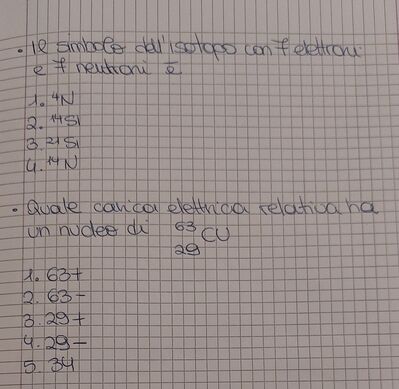 • Il simbolo dell'isotopo con 7 elettroni
e 7 neutroni è
1. ⁴N
2. ¹⁴Si
3. ²¹Si
4. ¹⁴N
• Quale carica elettrica relativa ha
un nucleo di ⁶³₂₉CU
1. 63+
2. 63-
3. 29+
4. 29-
5. 34